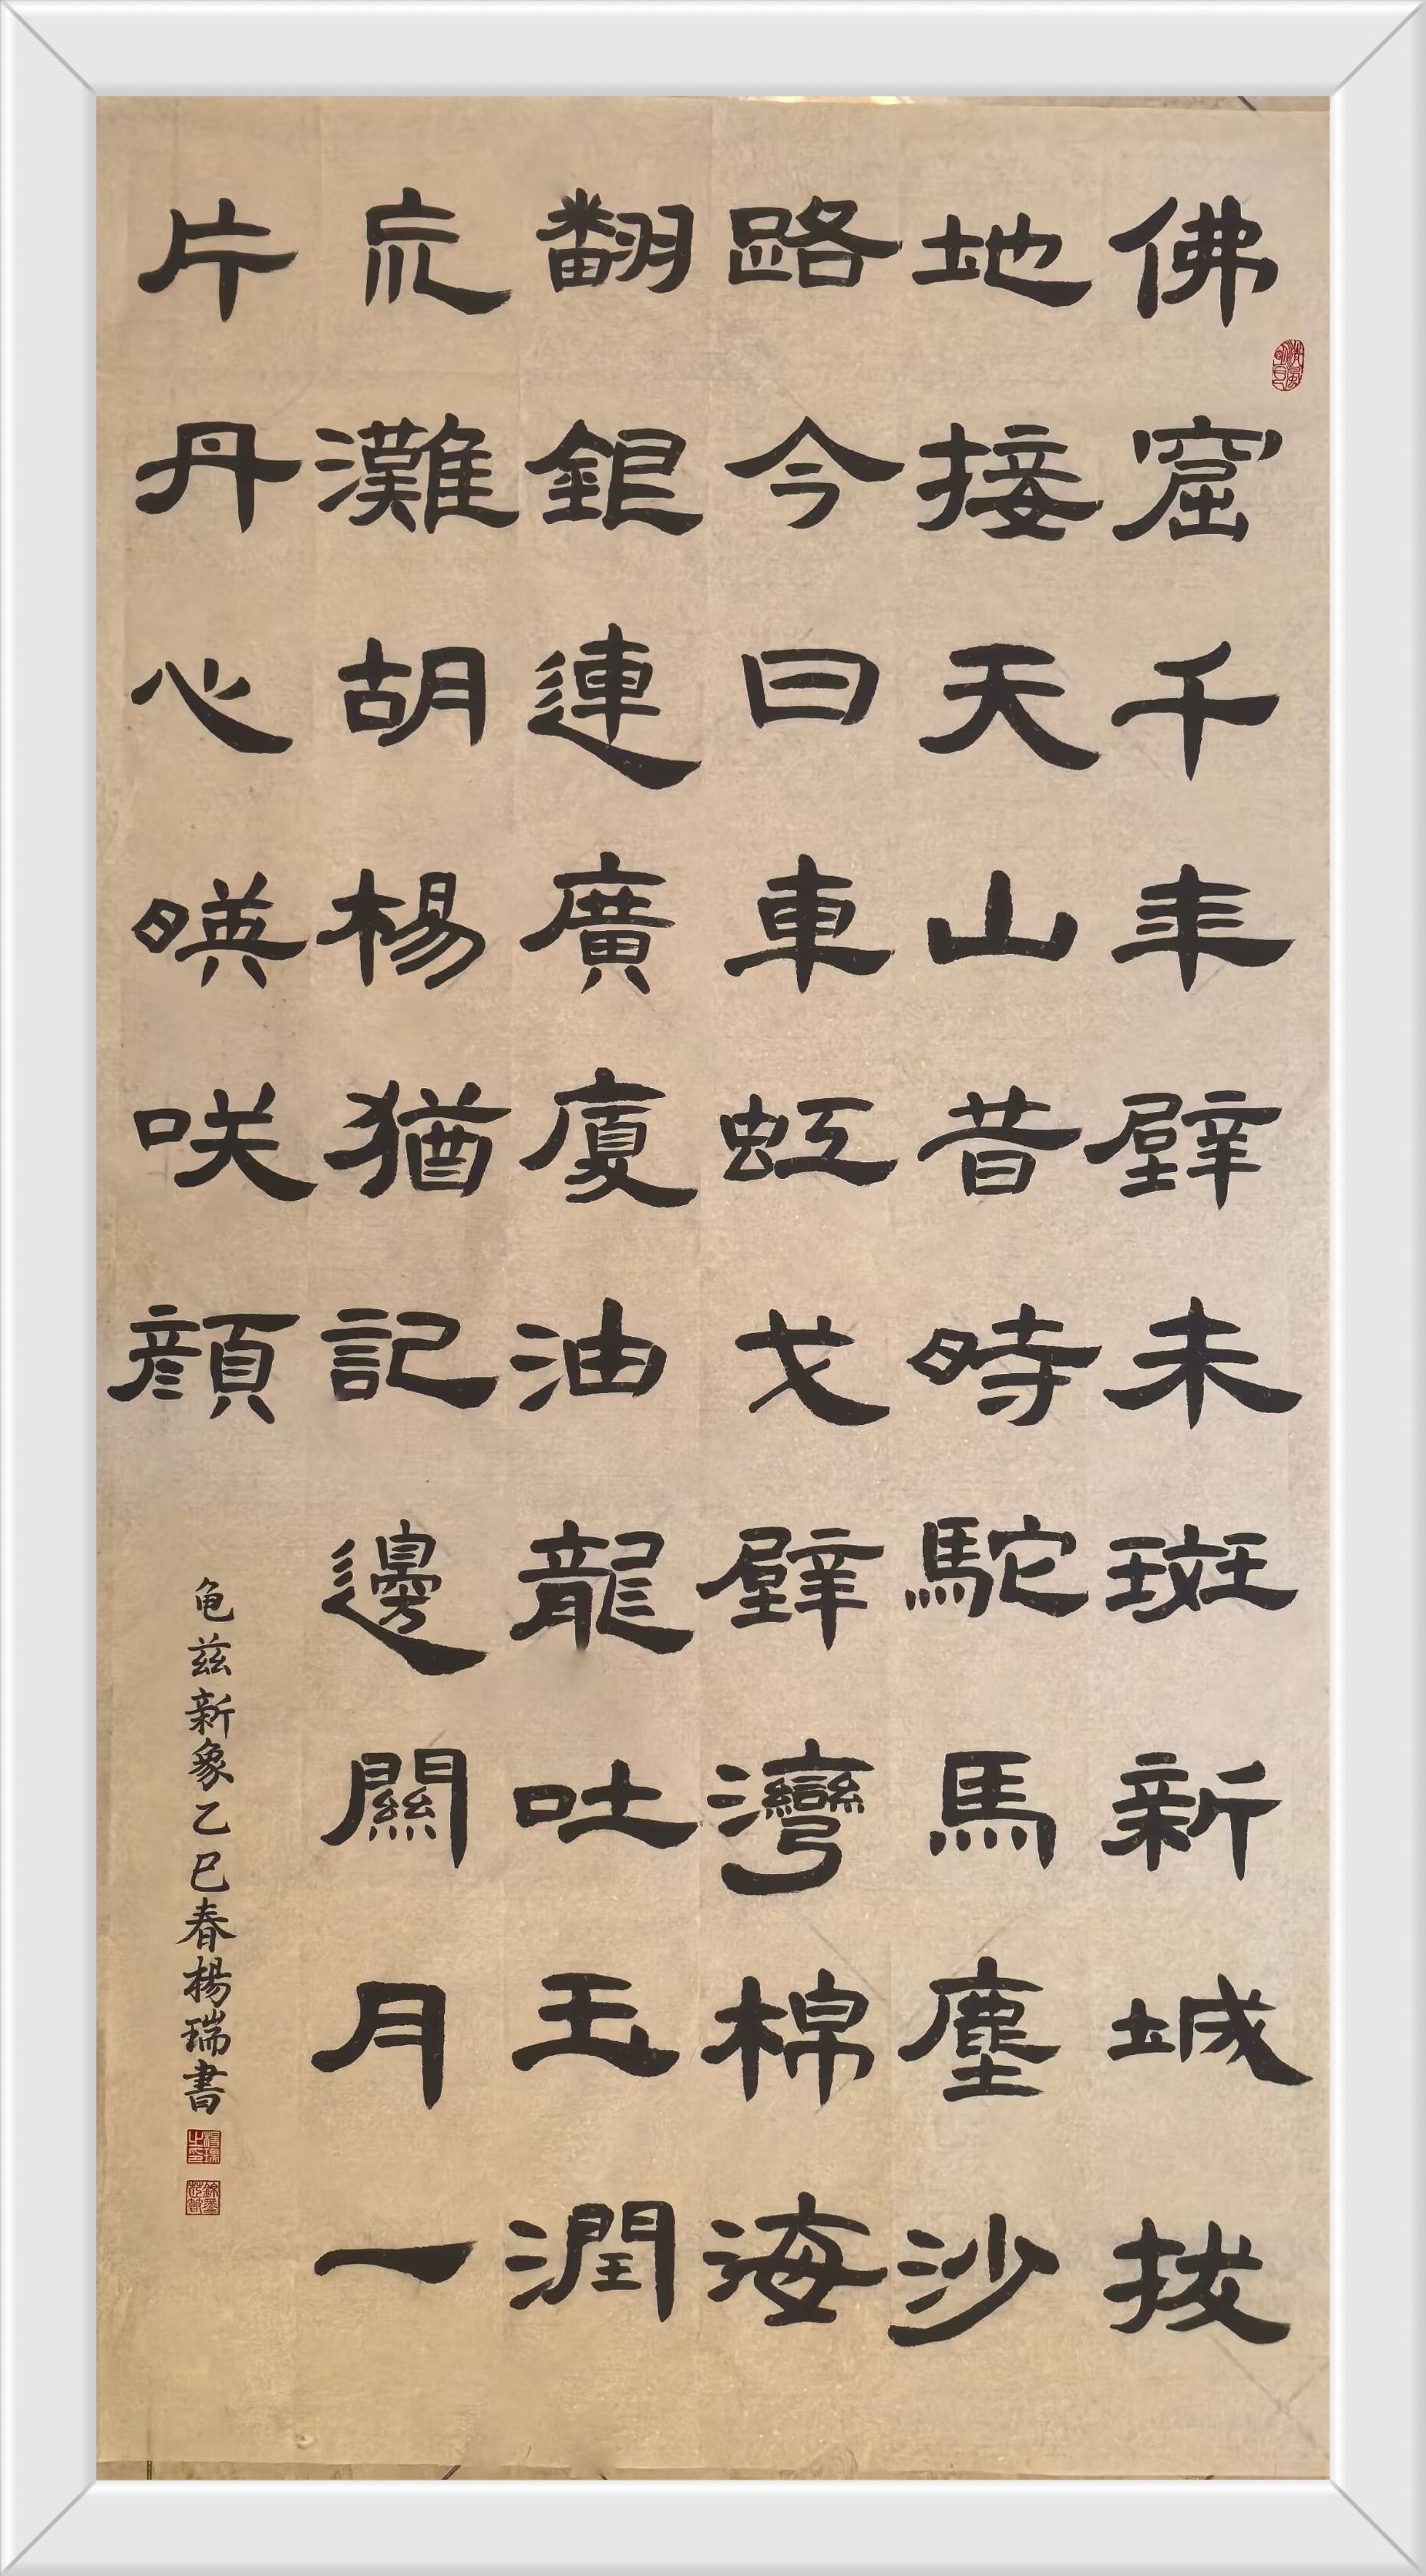 佛窟千年壁未斑新城拔
地接天山昔時駝馬塵沙
路今日車虹戈壁灣棉海
翻銀連廣廈油龍吐玉潤
巟灘胡楊猶記邊關月一
片丹心暎咲顏
龟兹新象乙巳春楊瑞書
楊瑞之印